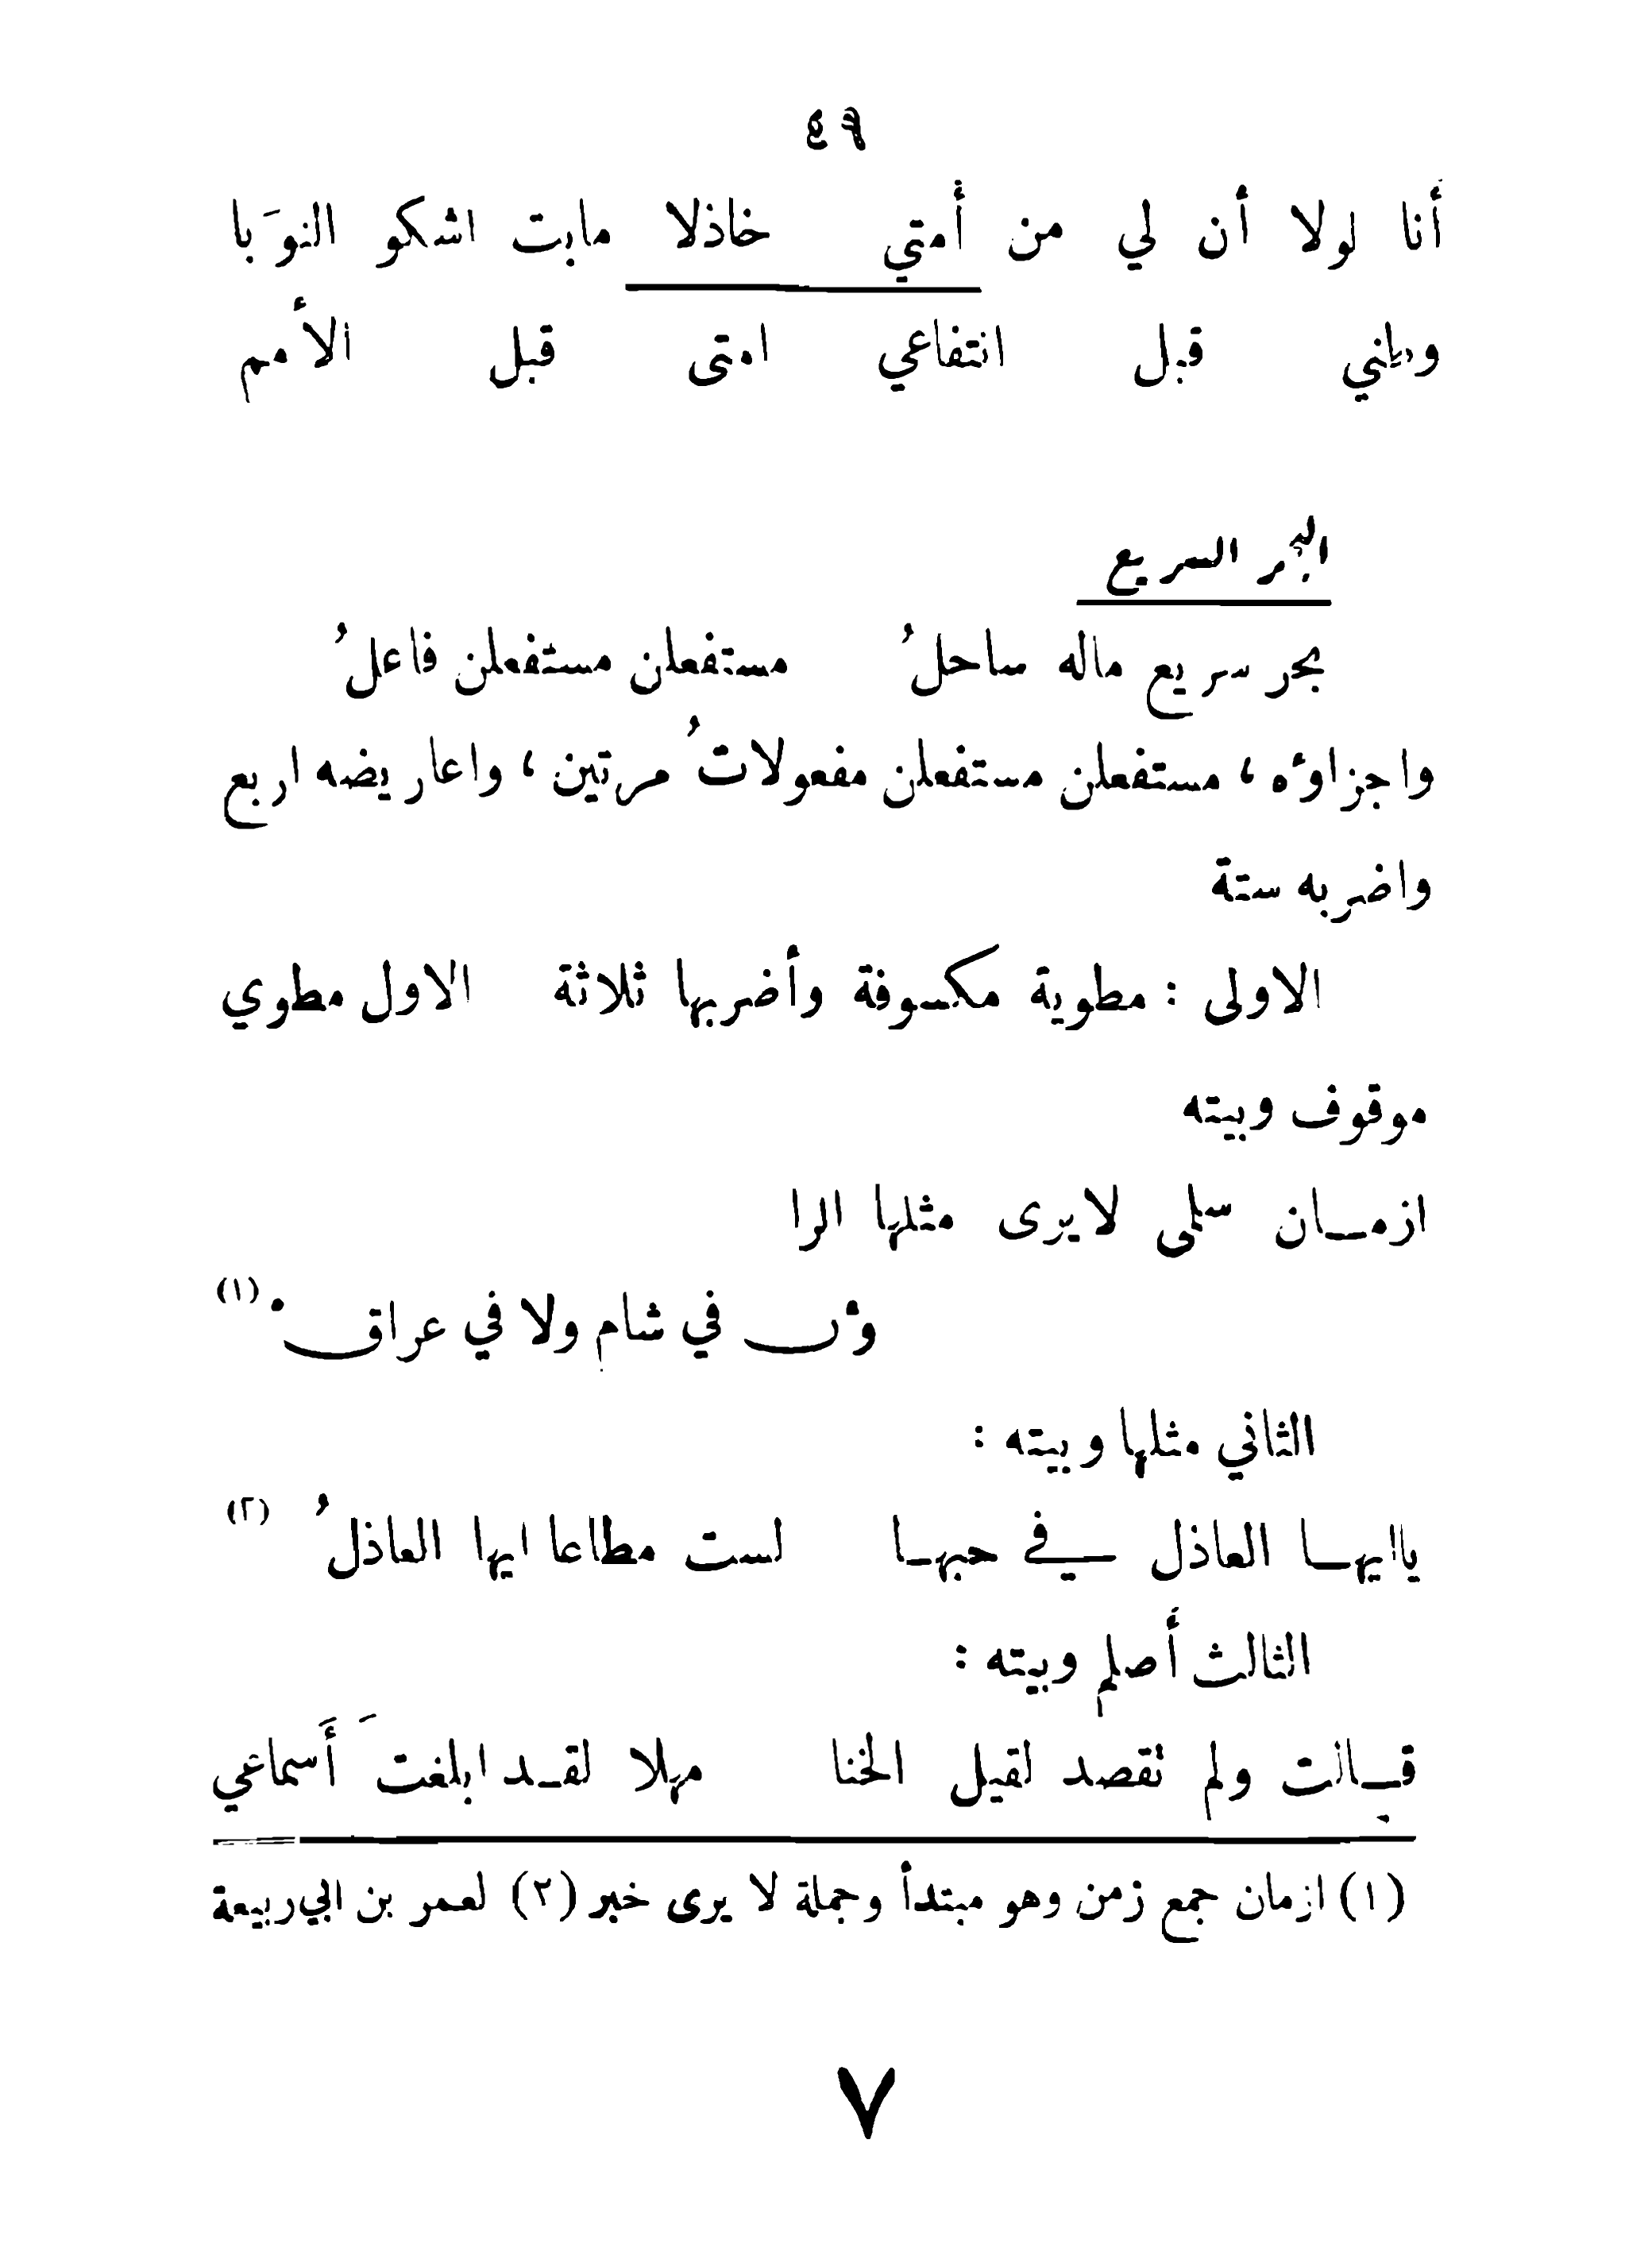 ٤٩
أنا لولا أن لي من أمتي خاذلا مابت اشكو النوَبا
وطني قبل انتفاعي امتى قبل الأمم
البحر السريع
بحر سريع ماله ساحلُ مستفعلن مستفعلن فاعلُ
واجزاوٴه ، مستفعلن مستفعلن مفعولاتُ مرتين ، واعاريضه اربع
واضربه ستة
الاولى : مطوية مكسوفة وأضربها ثلاثة الاول مطوي
موقوف وبيته
ازمـان سلمى لايرى مثلها الرا
وٴن في شام ولا في عراقْ (١)
الثاني مثلها وبيته :
ياايهـا العاذل في حبهـا لست مطاعا ايها العاذلُ (٢)
الثالث أصلم وبيته :
قـالت ولم تقصد لقيل الخنا مهلا لقـد ابلغتَ أَسماعي
(١) ازمان جمع زمن وهو مبتدأ وجملة لا يرى خبر (٢) لعمر بن ابي ربيعة
٧